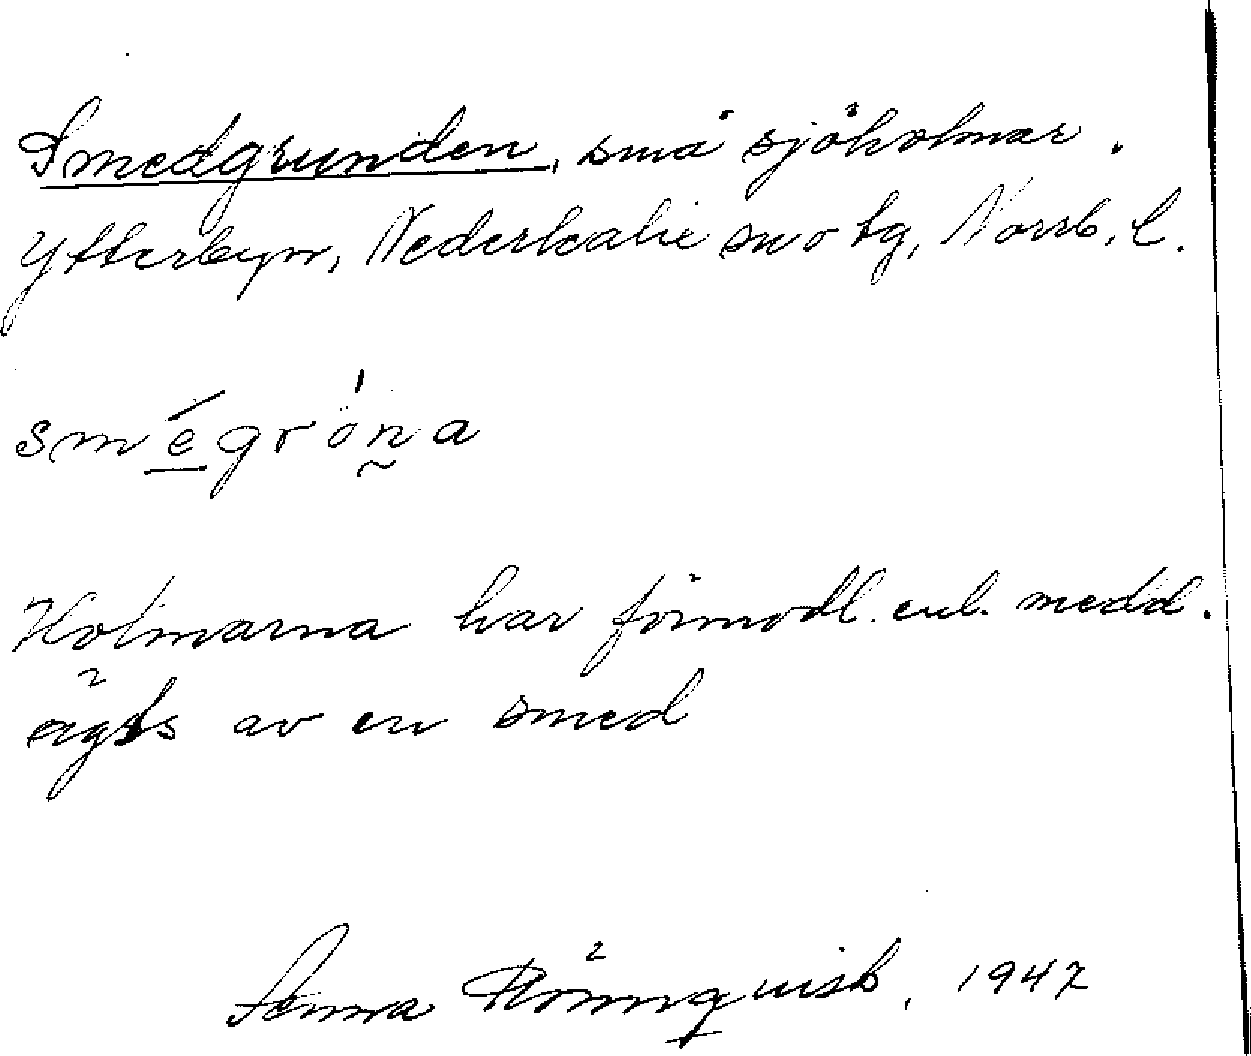 Smedgrunden, små sjöholmar.
Ytterbyn, Nederkalix sn o tg, Norrb. l.
smégrön̰a
Holmarna har förmodl. enl. medd.
ägts av en smed
Rönnquist, 1947